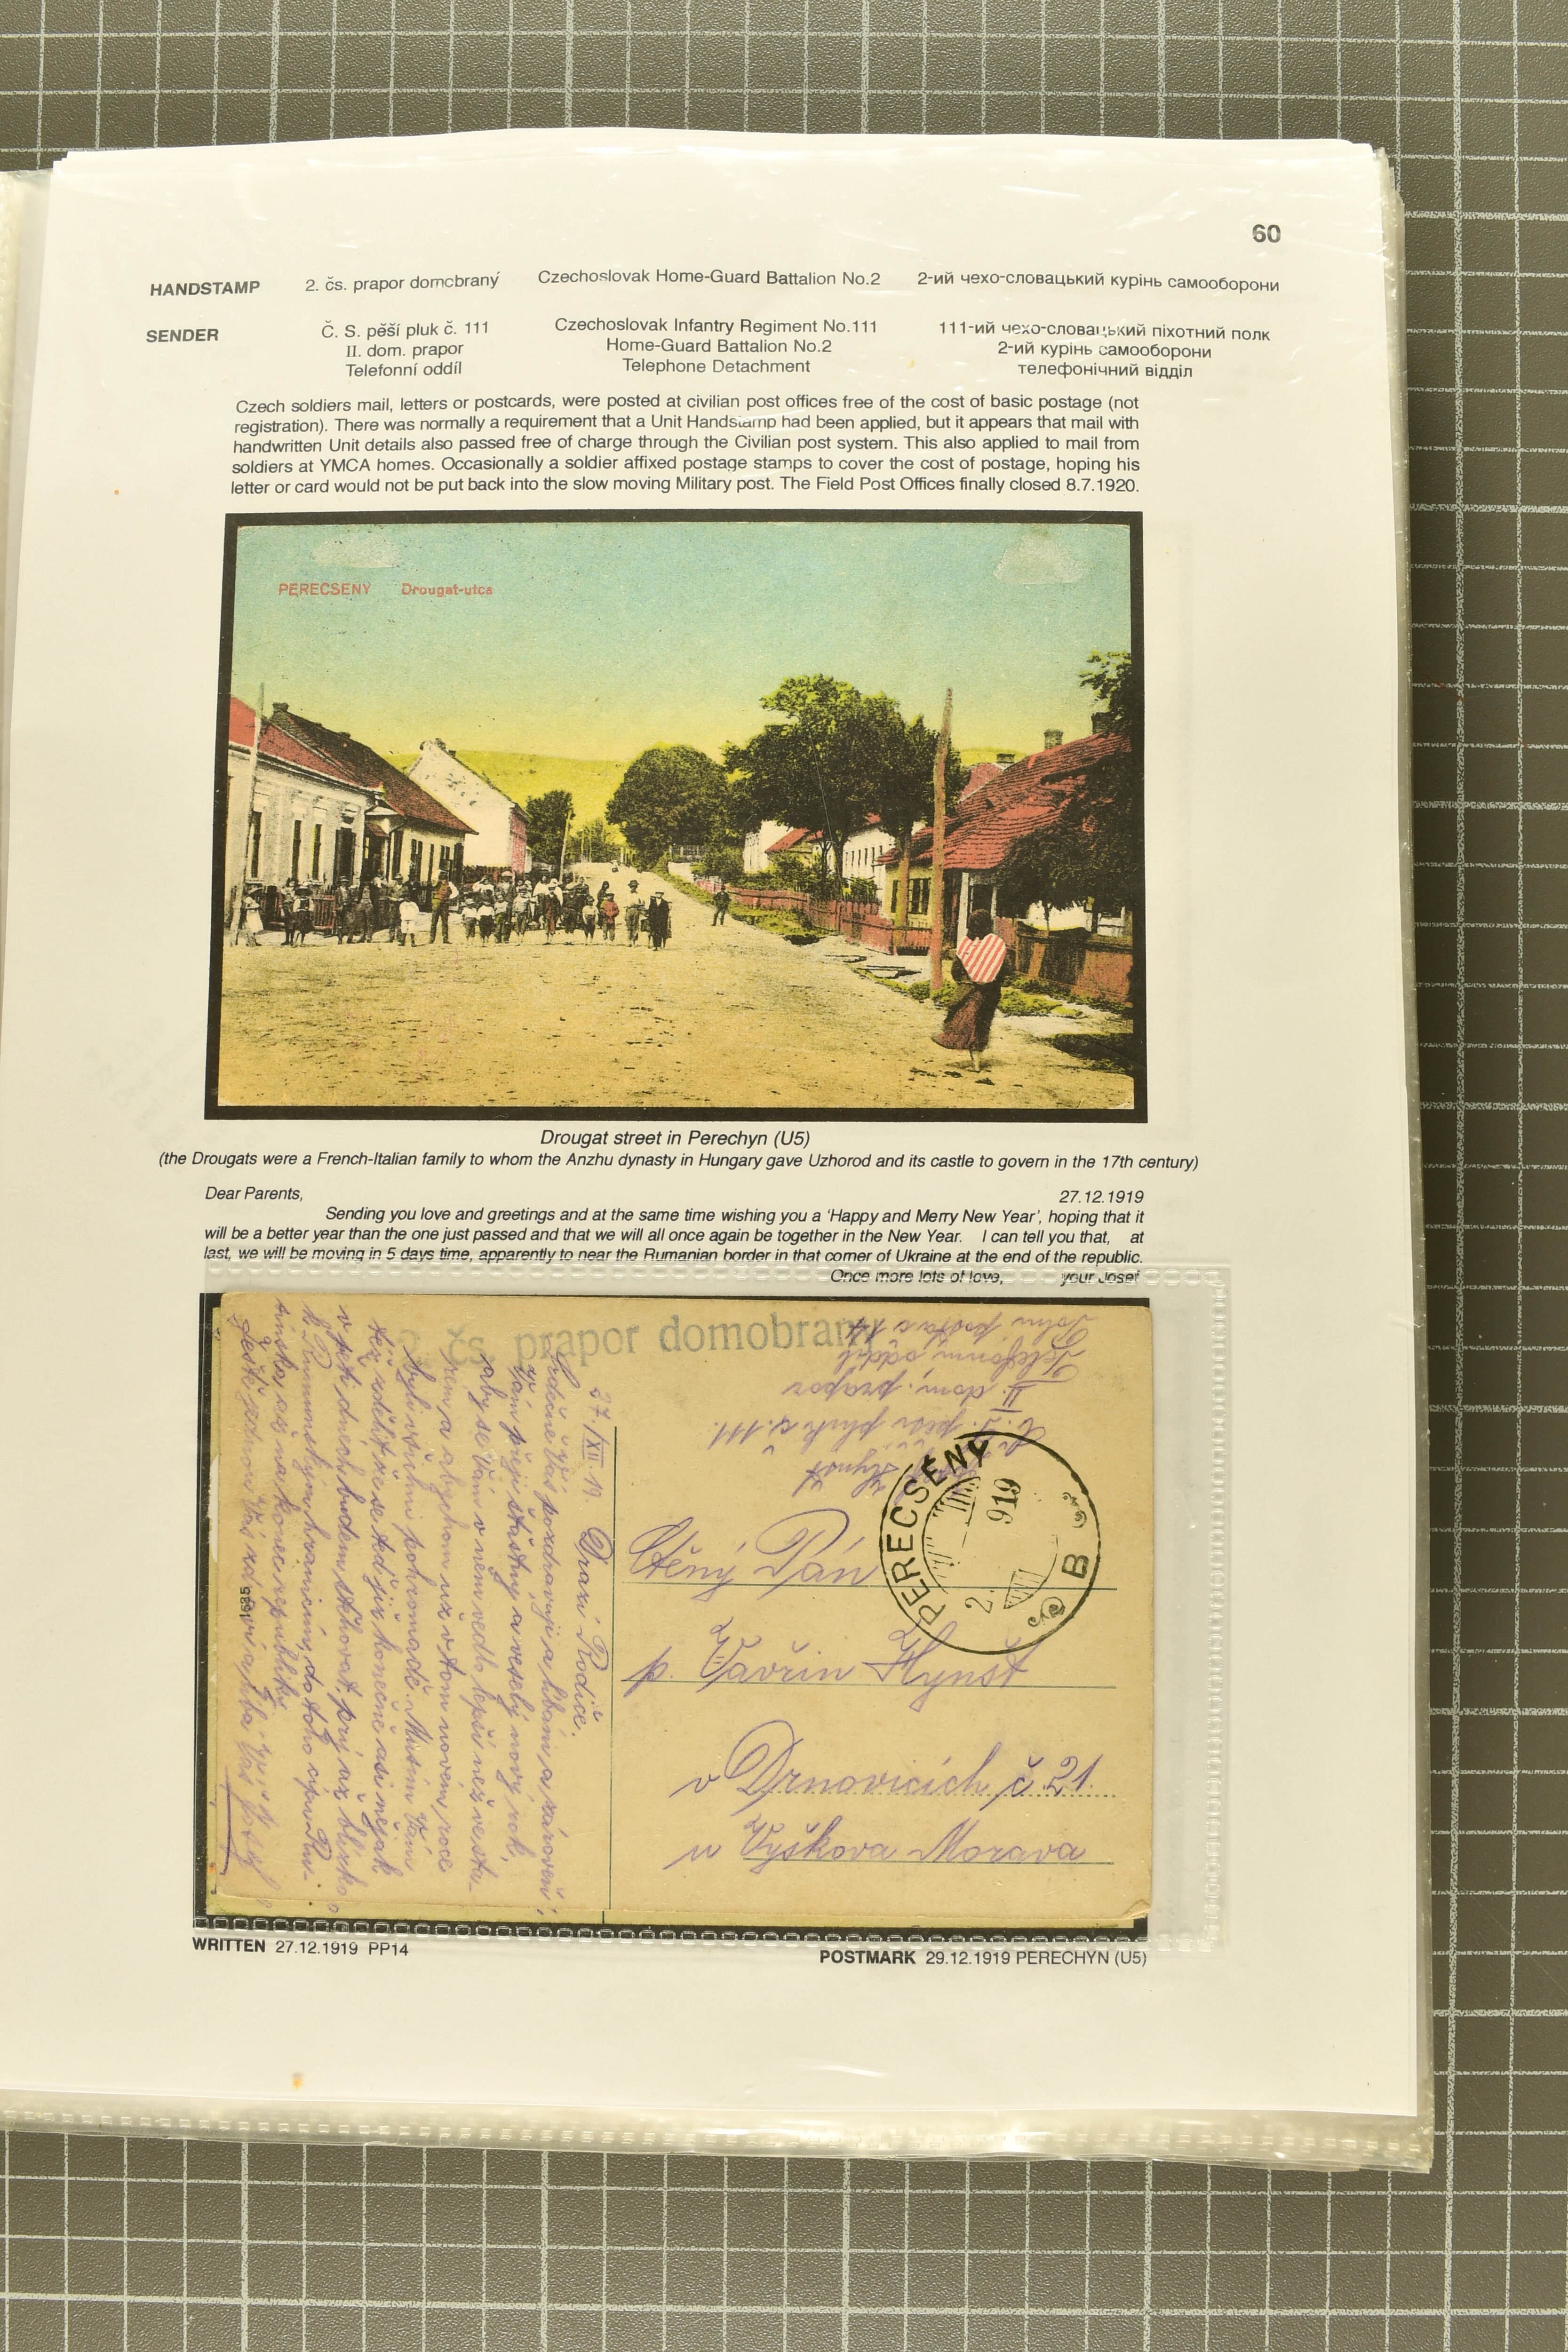 60
HANDSTAMP 2. čs. prapor domcbraný Czechoslovak Home-Guard Battalion No.2 2-ий чехо-словацький курінь самооборони
SENDER Č. S. pěší pluk č. 111 Czechoslovak Infantry Regiment No.111 111-ий чехо-словацький піхотний полк
II. dom. prapor Home-Guard Battalion No.2 2-ий курінь самооборони
Telefonní oddíl Telephone Detachment телефонічний відділ
Czech soldiers mail, letters or postcards, were posted at civilian post offices free of the cost of basic postage (not
registration). There was normally a requirement that a Unit Handstamp had been applied, but it appears that mail with
handwritten Unit details also passed free of charge through the Civilian post system. This also applied to mail from
soldiers at YMCA homes. Occasionally a soldier affixed postage stamps to cover the cost of postage, hoping his
letter or card would not be put back into the slow moving Military post. The Field Post Offices finally closed 8.7.1920.
PERECSENY Drougat-utca
Drougat street in Perechyn (U5)
(the Drougats were a French-Italian family to whom the Anzhu dynasty in Hungary gave Uzhorod and its castle to govern in the 17th century)
Dear Parents, 27.12.1919
Sending you love and greetings and at the same time wishing you a ‘Happy and Merry New Year’, hoping that it
will be a better year than the one just passed and that we will all once again be together in the New Year. I can tell you that, at
last, we will be moving in 5 days time, apparently to near the Rumanian border in that corner of Ukraine at the end of the republic.
Once more lots of love, your Josef
2. čs. prapor domobrany
Polní pošta č 14
Telefonní oddíl
II. dom. prapor
Č. S. pěší pluk č. 111.
Hynšt
27./XII 19. Drazí Rodiče.
Srdečně Vás pozdravuji a líbám a zároveň
Vám přeji šťastný a veselý nový rok,
aby se Vám v něm vedlo lepší než ve sta-
rém a abychom už v tom novém roce
byli všichni pohromadě. Musím Vám
též sdělit že se tedy již konečně asi nějak
v pěti dnech budem stěhovat prý až blízko
k Rumunským hranicím do toho cípu
až na konec republiky.
Ještě jednou Vás zdraví a líbá Váš
1635
PERECSÉNY
919
2
B
Ctěný Pán
p. Vavřin Hynšt
v Drnovicích č. 21.
u Vyškova Morava
WRITTEN 27.12.1919 PP14
POSTMARK 29.12.1919 PERECHYN (U5)